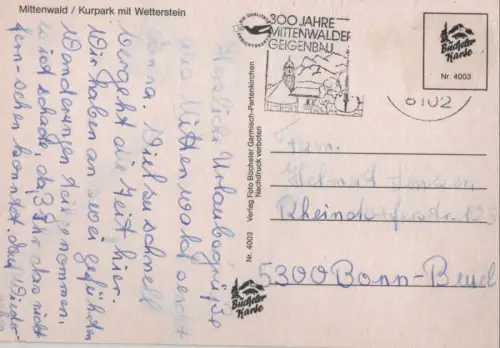 Mittenwald / Kurpark mit Wetterstein
DIE QUALITÄTS
ANSICHTSKARTE
300 JAHRE
MITTENWALDER
GEIGENBAU
Bücheler
Karte
Nr. 4003
8102
Herzliche Urlaubsgrüße
aus Mittenwald sendet
Anna. Viel zu schnell
vergeht die Zeit hier.
Wir haben an zwei geführten
Wanderungen teilgenommen.
ist schade, daß Ihr das nicht
sehen konntet. Auf Wieder-
Nr. 4003 Verlag Foto Bücheler Garmisch-Partenkirchen
Nachdruck verboten
Bücheler
Karte
Fam.
Helmut
Rheindorferstr.
5300 Bonn-Beuel